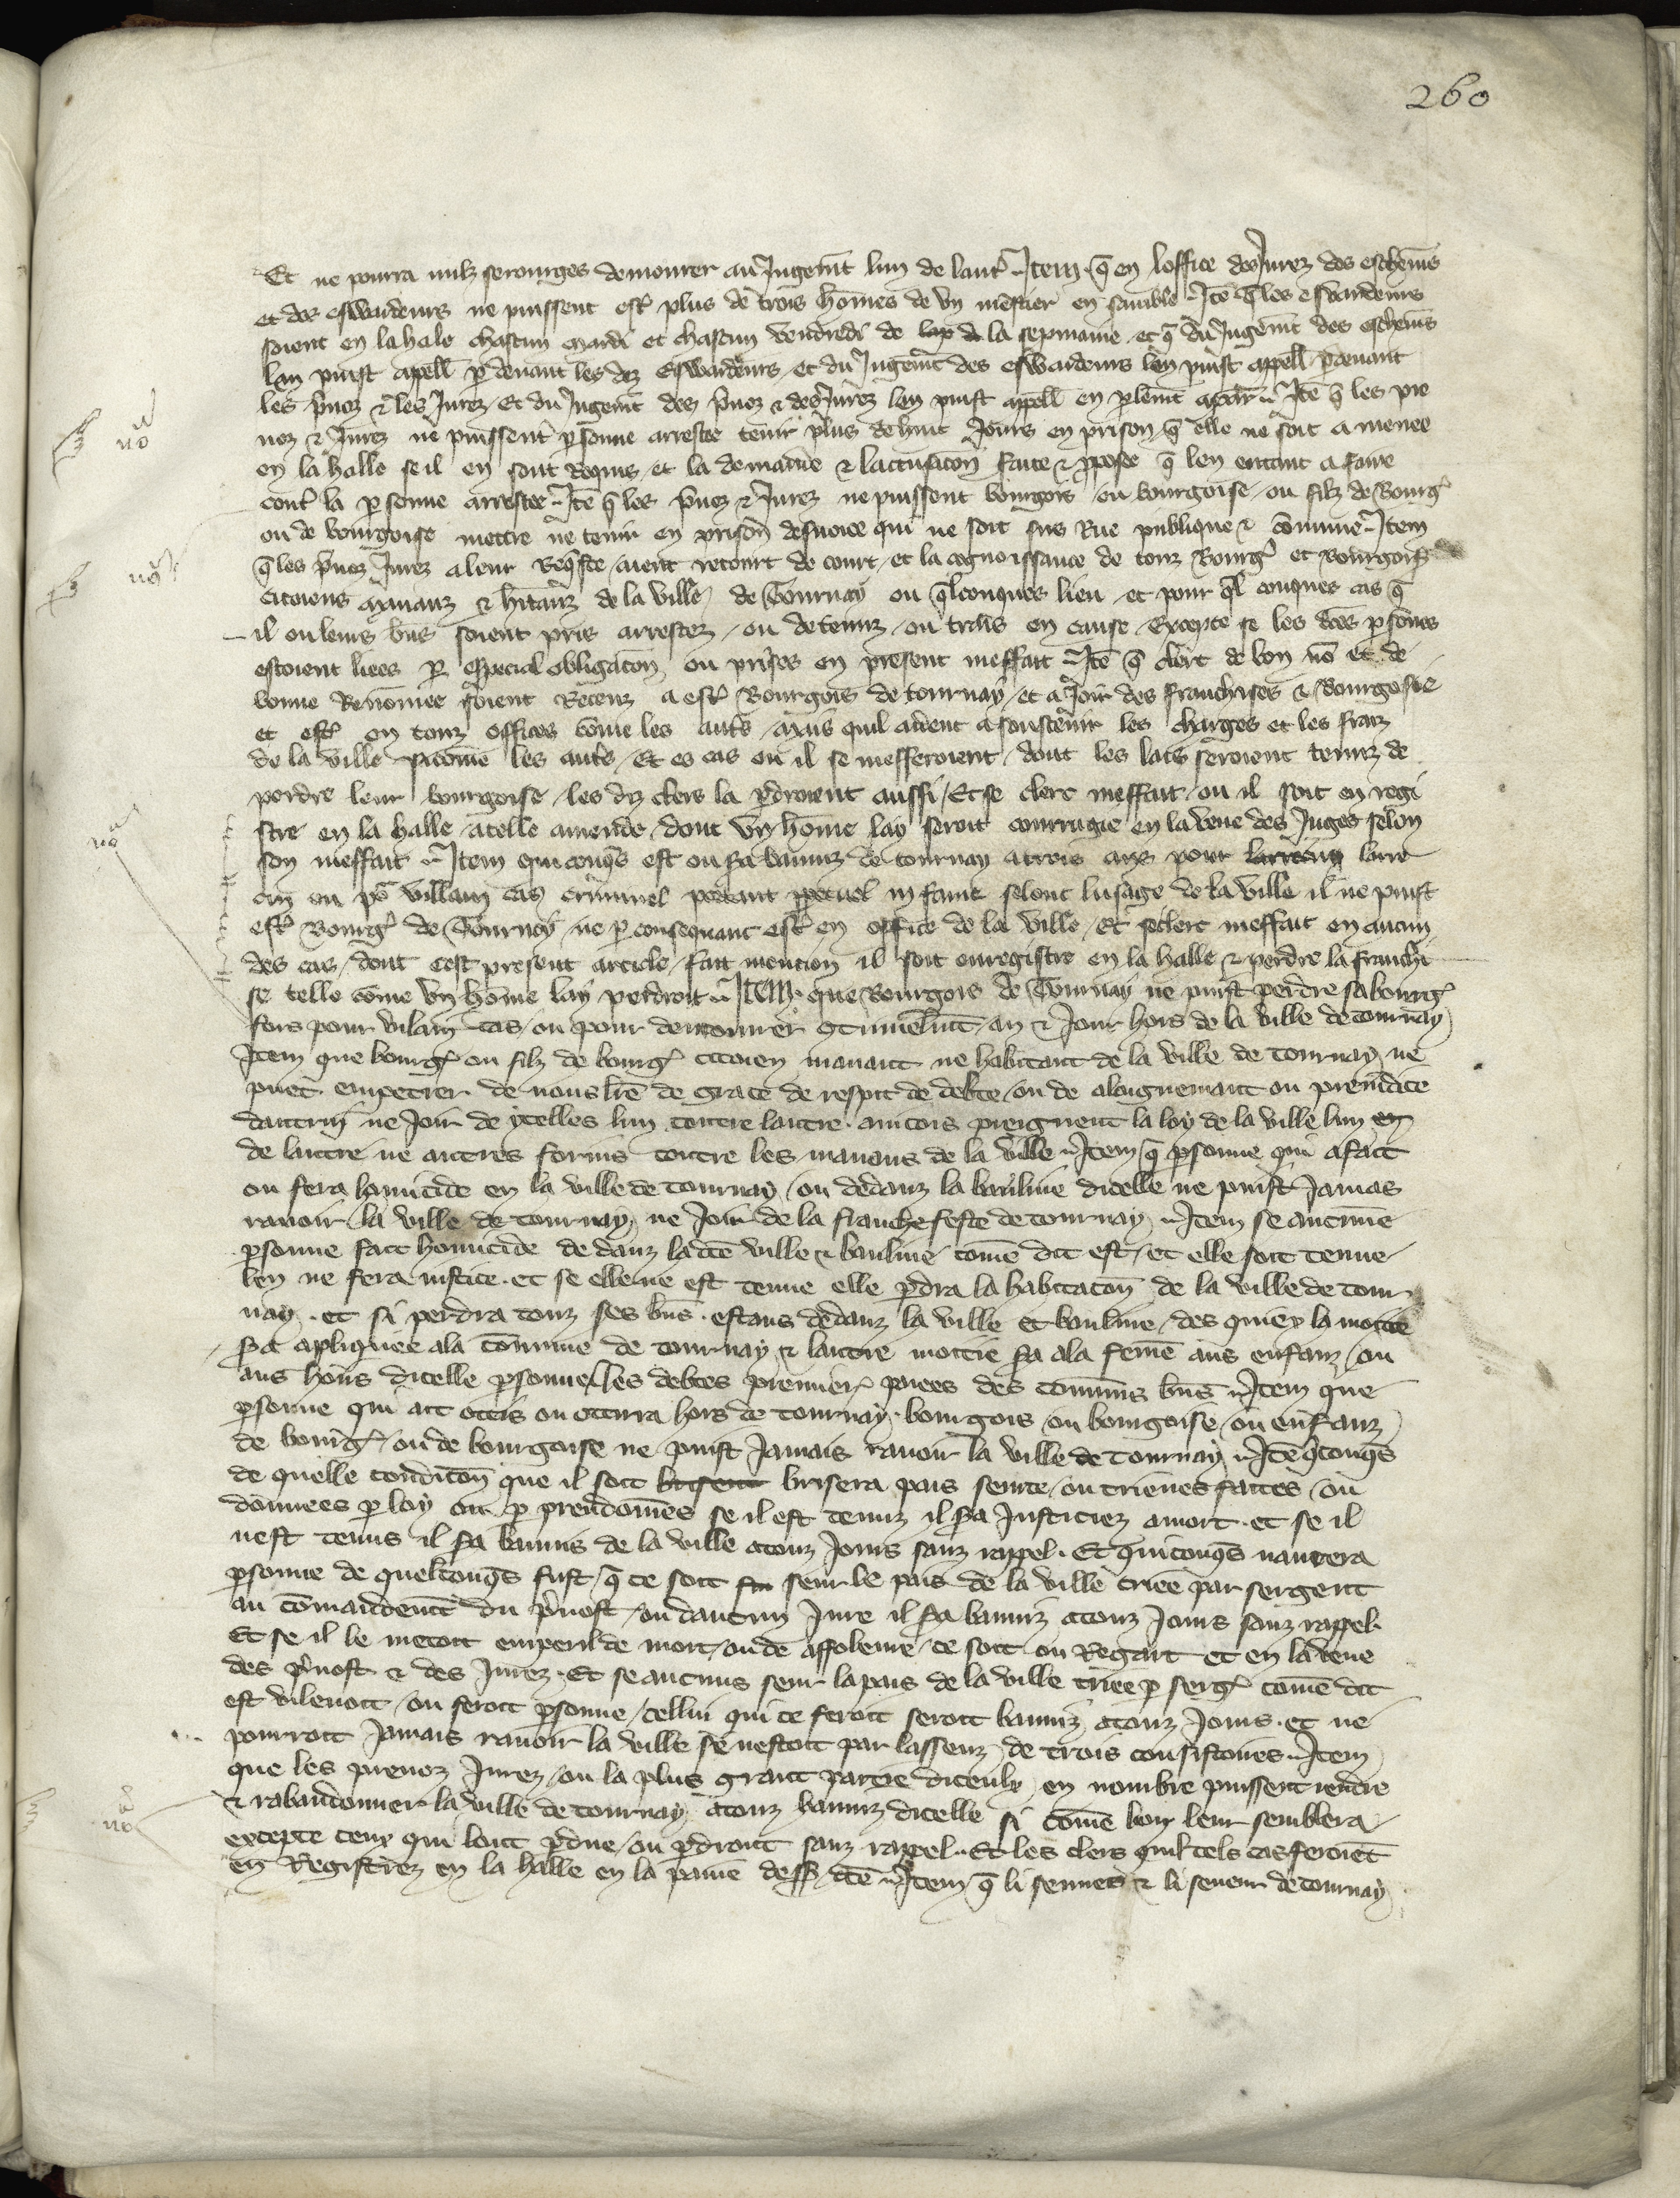 260
Et ne pourra nulz serourges demourer au Jugemēt lun de lautˀ Itēm q̄ en loffice des Jurez des escheuīs
et des eswardeurs ne puissent estˀ plus de trois hōmes de vn mestier en samble Itē q̄ les eswardeurs
soient en la hale chascun mardi et chascun vendredi de la sepmaine et q̄ du Jugemēt des escheuīs
lan puist apell̄ p deuant les dz Eswardeurs et du Jugemēt des eswardeurs len puist appell̄ p̱deuant
les p̄uoz & les Jurez Et du Jugemēt des p̄uoz & des Jurez len puist appell̄ en p̱lemēt Itē q̄ les pre
uoz & Jurez ne puissent p̱sonne arrestee tenir plus de huit Jours en prison q̄ elle ne soit amenee
en la halle se il en sont Requis et la demande & lactusacon̄ faite & ppose q̄ len entent a faire
contˀ la p̱sonne arrestee Itē q̄ les p̄uoz & Jurez ne puissent bourgois ou bourgoise ou filz de Bourgˀ
ou de bourgoise mettre ne tenir en prison desuoiee qui ne soit sus Rue publique & cōmune Item
q̄ les p̄uoz Jurez a leur Req̄ste aient retourt de court et la cognoissance de touz Bourgˀ et Bourgoisˀ
Citoiens manans & hītanz de la ville de Tournay ou q̄lconques lieu et pour q̄l conques cas q̄
il ou leurs bn̄s soient pris arrestez ou detenuz ou trais en cause Excepte se les dc̄es p̱sones
estoient liees p̱ especial obligacon̄ ou prises en present meffait Itē q̄ clerc de bon nō et de
bonne Renōmee soient Receuz a estˀ Bourgois de tournay et a Joir des franchises & Bourgosie
et estˀ en touz offices cōme les autˀs mais quil aident a soustenir les charges et les fraiz
de la ville sicōme les autˀs Et es cas ou il se mefferoient dont les lais seroient tenuz de
perdre leur bourgoise les dz clers la p̱droient aussi Et se clerc meffait ou il soit en regi
stre en la halle a telle amende dont vn hōme lay seroit courrigie en la veue des Juges selon
son meffait Item quiconq̄s est ou s̄a banniz de tournay a trois ans pour larre
cin ou pō villain cas criminel portant ppetuel infame selonc lusage de la ville il ne puist
estˀ Bourgˀ de Tournay ne p̱ consequant estˀ en office de la ville Et se clerc meffait en aucun
des cas dont cest present article fait mention il soit enregistre en la halle & perdre la franchi
se telle cōme vn hōme lay perdroit Item que Bourgois de Tournay ne puist perdre sa bourgˀ
fors pour vilain cas ou pour demourer 9tinuelmēt an & Jour hors de la ville de tournay
Item que bourgˀ ou filz de bourgˀ citoien manant ne habitant de la ville de tournay ne
puet empetrer de nous lr̄e de grace de respit de debte ou de aloignemant ou preiudice
dautrui ne Joir de ytelles lun contre lautre aincois preignent la loy de la ville lun
de lautre ne autres forins contre les manans de la ville Item q̄ p̱sonne qui a fait
ou fera homicide en la ville de tournay ou dedanz la banliue dicelle ne puist Jamas
rauoir la ville de tournay ne Joir de la franche feste de tournay Item se aucune
p̱sonne fait homicide dedanz la dc̄e ville & banliue come dit est et elle soit tenue
len ne fera iustice et se elle ne est tenue elle p̱dra la habitacon̄ de la ville de tour
nay et si perdra touz ses bn̄s estans dedanz la ville et banliue des quiex la moitie
s̄a apliquiee a la cōmune de tournay & lautre moitie s̄a a la feme aus enfanz ou
aus hoirs dicelle p̱sonne les debtes premierˀ paiees des communs bn̄s Item que
p̱sonne qui ait occis ou occura hors de tournay bourgois ou bourgoise ou enfanz
de bourgˀ ou de bourgoise ne puist Jamais rauoir la ville de tournay Itē q̄conq̄s
de quelle condicon̄ que il soit brisera pais seurte ou trieues faites ou
donnees p̱ loy ou p̱ preudomes se il est tenuz il s̄a Justiciez a mort et se il
nest tenus il s̄a bannis de la ville a touz Jours sanz rappel Et quiconq̄s naurera
p̱sonne de quelconq̄s fust q̄ ce soit seur le pais de la ville criee par sergent
au cōmandemēt du p̄uost ou daucun Jure il s̄a banniz a touz Jours sanz rappel
Et se il le metoit em peril de mort ou de affoleure ce soit ou Regart et en la veue
des p̄uost & des Jurez Et se aucuns seur la pais de la ville criee p̱ sergˀ come dit
est vilenoit ou feroit p̱sonne cellui qui ce feroit seroit banniz a touz Jours et ne
pourroit Jamais rauoir la ville se nestoit par lassenz de trois consistoires Item
que les preuoz Jurez ou la plus grant partie diceulx en nombre puissent rendre
& rabandonner la ville de tournay a touz banniz dicelle si come bon leur semblera
excepte ceux qui lont p̱due ou p̱droit sanz rappel Et les clers qui tels cas feroiēt
en Registrez en la halle en la paine dess dc̄e Item q̄ li sennes & li seneur de tournay
no
no
no
no